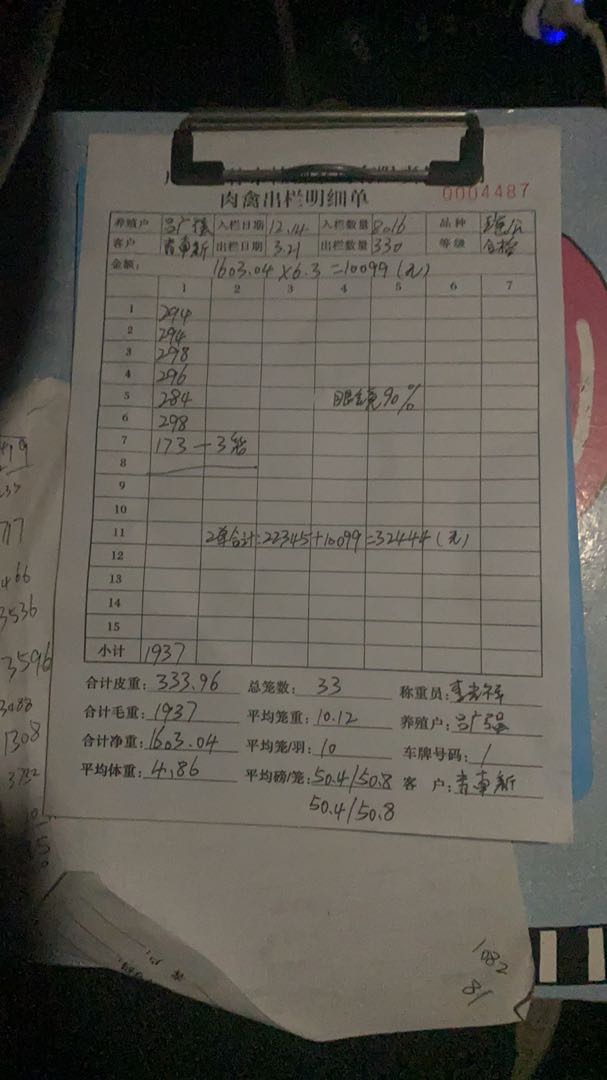 肉禽出栏明细单
0004487
养殖户 入栏日期 12.14 入栏数量 8016 品种
客户 出栏日期 3.21 出栏数量 330 等级 合格
金额: 1603.04×6.3=10099(元)
1 2 3 4 5 6 7
1 294
2 294
3 298
4 296
5 284 90%
6 298
7 173—3笼
8
9
10
11 2单合计:22345+10099=32444(元)
12
13
14
15
小计 1937
合计皮重: 333.96 总笼数: 33 称重员:
合计毛重: 1937 平均笼重: 10.12 养殖户:
合计净重: 1603.04 平均笼/羽: 10 车牌号码: /
平均体重: 4.86 平均磅/笼: 50.4/50.8 客户:
50.4/50.8
466
3536
3596
1308
1082
81